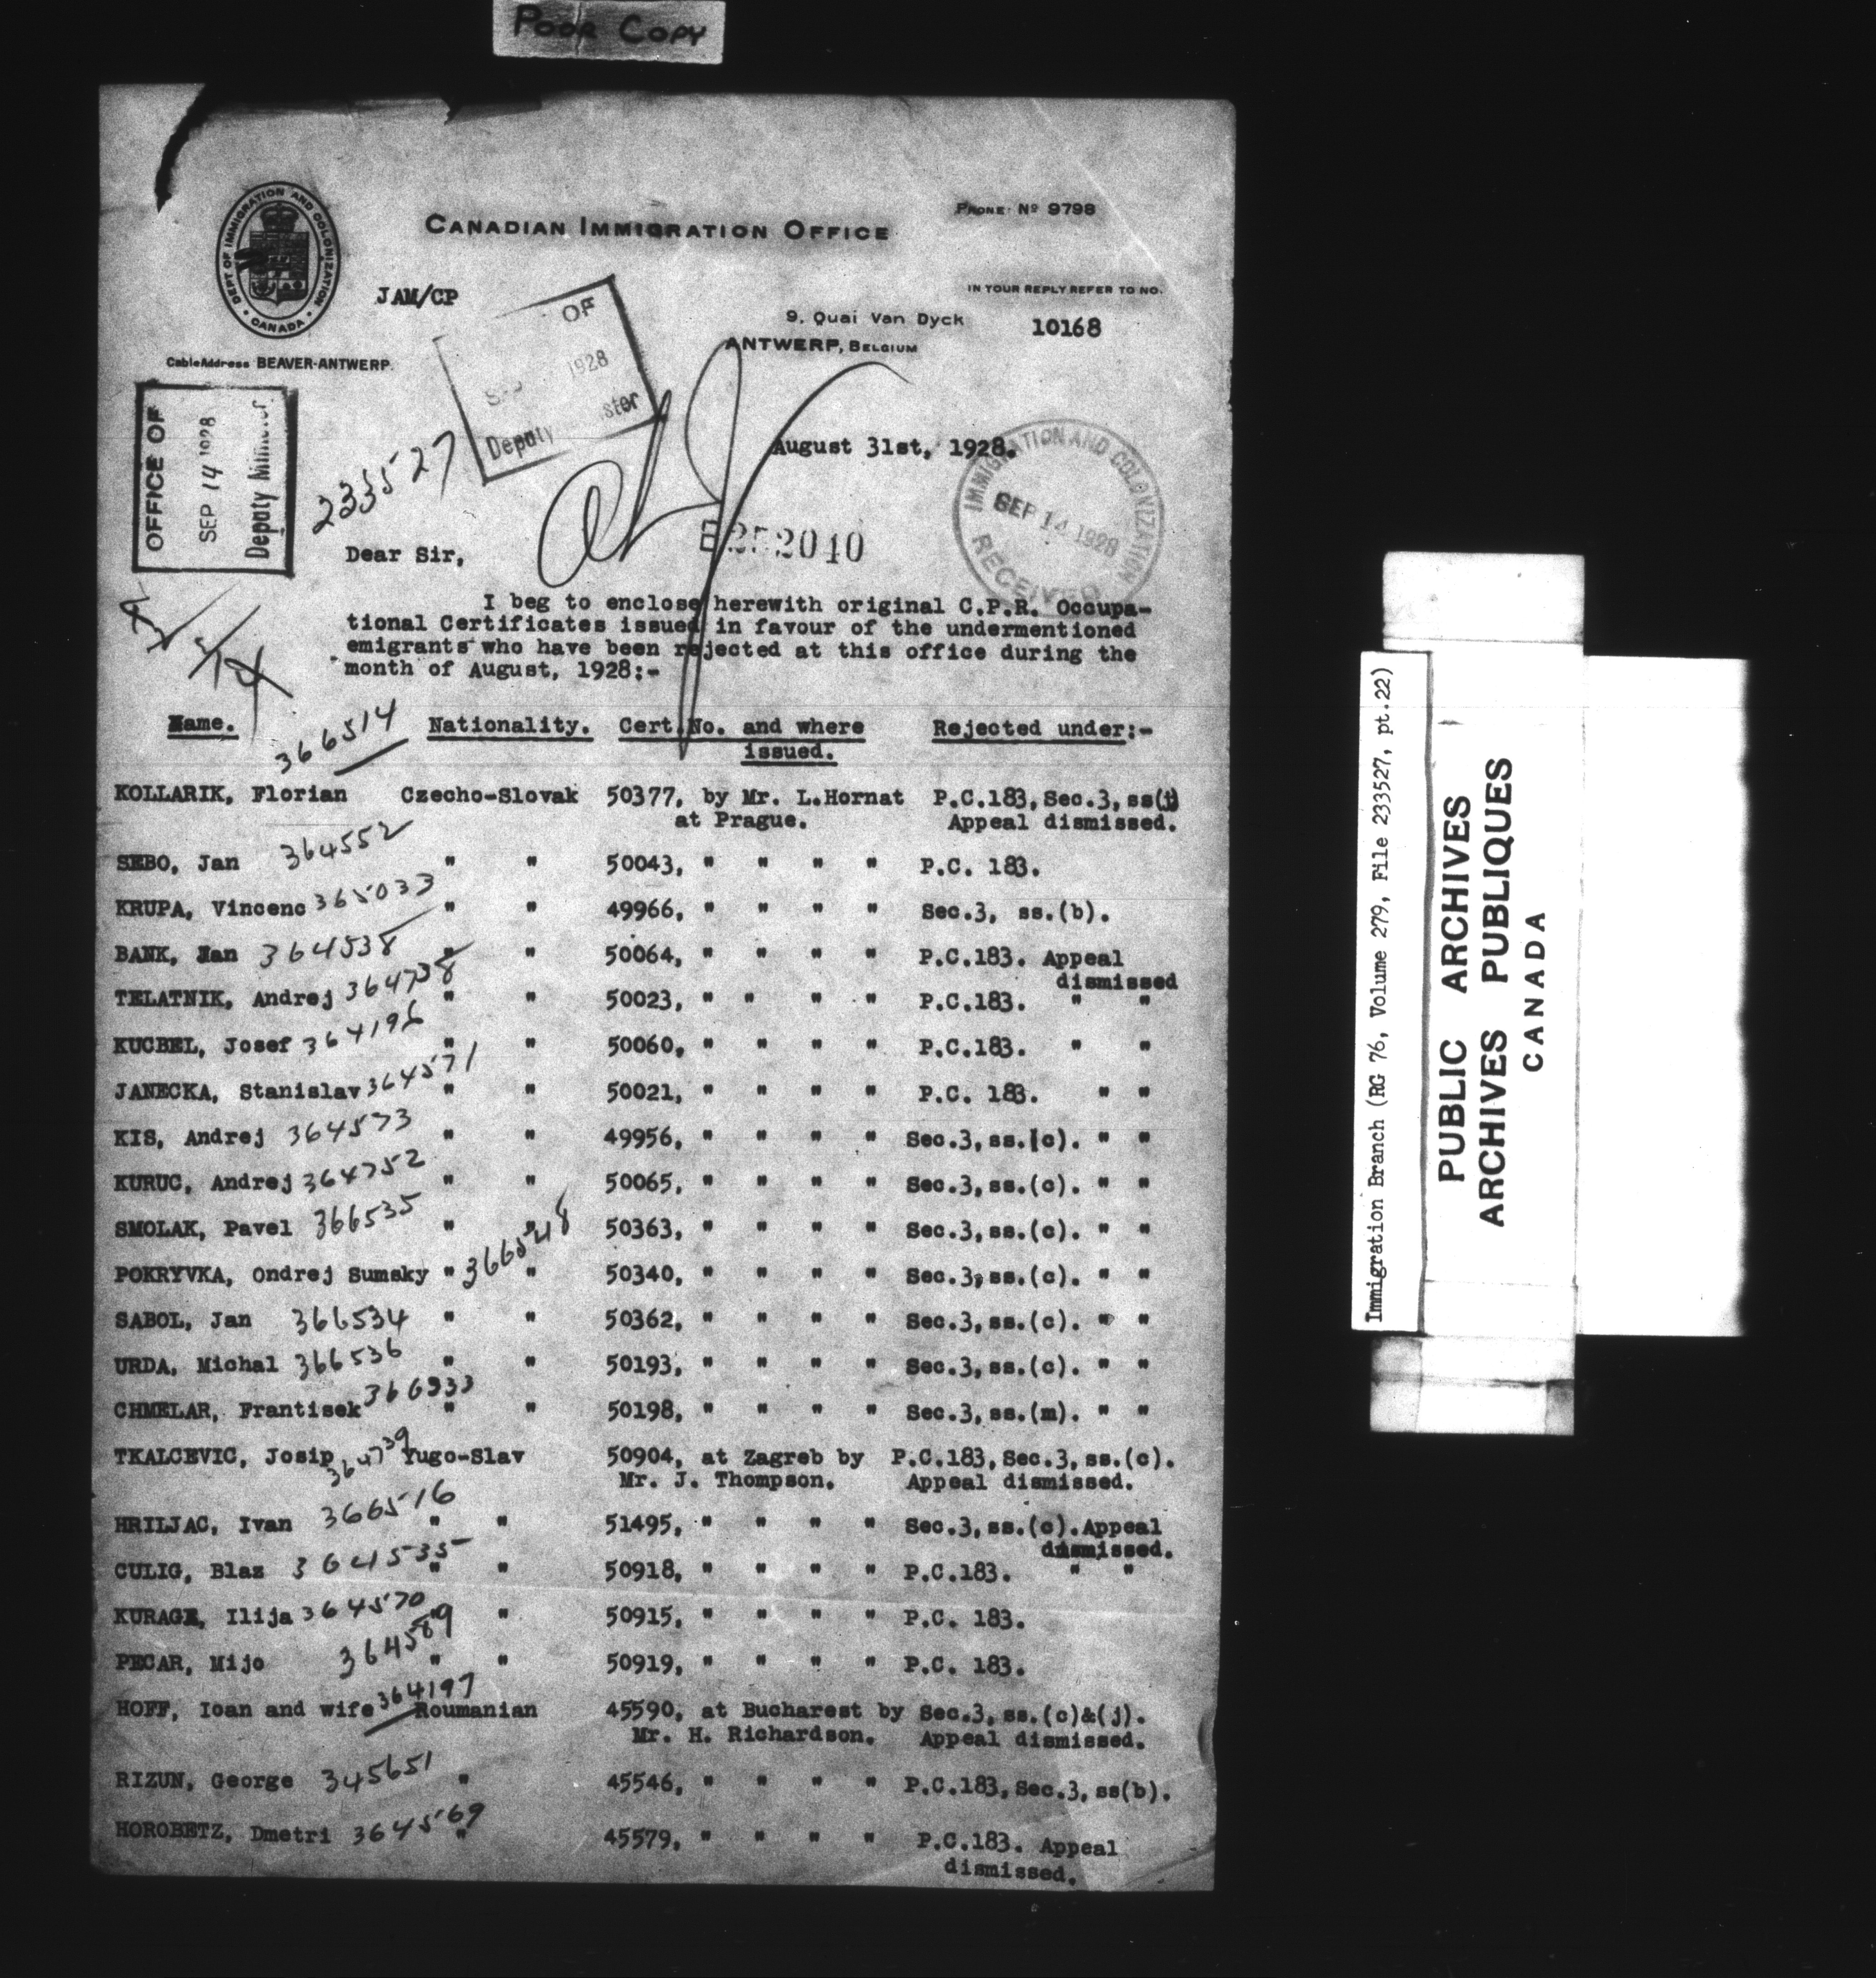 POOR COPY
DEPT OF IMMIGRATION AND COLONIZATION
CANADA
CANADIAN IMMIGRATION OFFICE
PHONE: Nº 9798
JAM/CP
IN YOUR REPLY REFER TO NO.
10168
9, Quai Van Dyck
ANTWERP, BELGIUM
Cable Address BEAVER-ANTWERP.
OF
1928
Deputy
OFFICE OF
SEP 14 1928
Deputy Minister
233527
August 31st, 1928.
IMMIGRATION AND COLONIZATION
SEP 14 1928
RECEIVED
252040
Dear Sir,
I beg to enclose herewith original C.P.R. Occupa-
tional Certificates issued in favour of the undermentioned
emigrants who have been rejected at this office during the
month of August, 1928:-
Name. Nationality. Cert.No. and where Rejected under:-
issued.
366514
KOLLARIK, Florian Czecho-Slovak 50377, by Mr. L.Hornat P.C.183,Sec.3,ss(j)
at Prague. Appeal dismissed.
SEBO, Jan 364552 " " 50043, " " " " P.C. 183.
KRUPA, Vincenc 365033 " " 49966, " " " " Sec.3, ss.(b).
BANK, Jan 364538 " " 50064, " " " " P.C.183. Appeal
dismissed
TELATNIK, Andrej 364738 " " 50023, " " " " P.C.183. " "
KUCBEL, Josef 364196 " " 50060, " " " " P.C.183. " "
JANECKA, Stanislav 364571 " " 50021, " " " " P.C. 183. " "
KIS, Andrej 364573 " " 49956, " " " " Sec.3,ss.(c). " "
KURUC, Andrej 364752 " " 50065, " " " " Sec.3,ss.(c). " "
SMOLAK, Pavel 366535 " " 50363, " " " " Sec.3,ss.(c). " "
POKRYVKA, Ondrej Sumsky " 366528 " 50340, " " " " Sec.3,ss.(c). " "
SABOL, Jan 366534 " " 50362, " " " " Sec.3,ss.(c). " "
URDA, Michal 366536 " " 50193, " " " " Sec.3,ss.(c). " "
CHMELAR, Frantisek 366533 " " 50198, " " " " Sec.3,ss.(m). " "
TKALCEVIC, Josip 364739 Yugo-Slav 50904, at Zagreb by P.C.183,Sec.3,ss.(c).
Mr. J. Thompson. Appeal dismissed.
HRILJAC, Ivan 366516 " " 51495, " " " " Sec.3,ss.(c).Appeal
dismissed.
CULIG, Blaz 364535 " " 50918, " " " " P.C.183. " "
KURAGE, Ilija 364570 " " 50915, " " " " P.C. 183.
PECAR, Mijo 364589 " " 50919, " " " " P.C. 183.
HOFF, Ioan and wife 364197 Roumanian 45590, at Bucharest by Sec.3,ss.(c)&(j).
Mr. H. Richardson. Appeal dismissed.
RIZUN, George 345651 " 45546, " " " " P.C.183,Sec.3,ss(b).
HOROBETZ, Dmetri 364569 " 45579, " " " " P.C.183. Appeal
dismissed.
Immigration Branch (RG 76, Volume 279, File 233527, pt.22)
PUBLIC ARCHIVES
ARCHIVES PUBLIQUES
CANADA